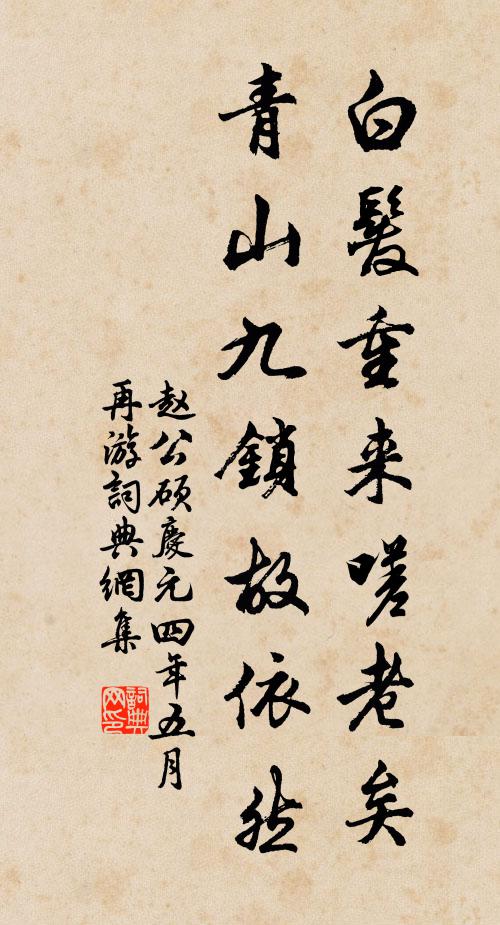 白髮重来嗟老矣
青山九鎖故依然
赵公硕慶元四年五月
再游詞典網集
詞典网印